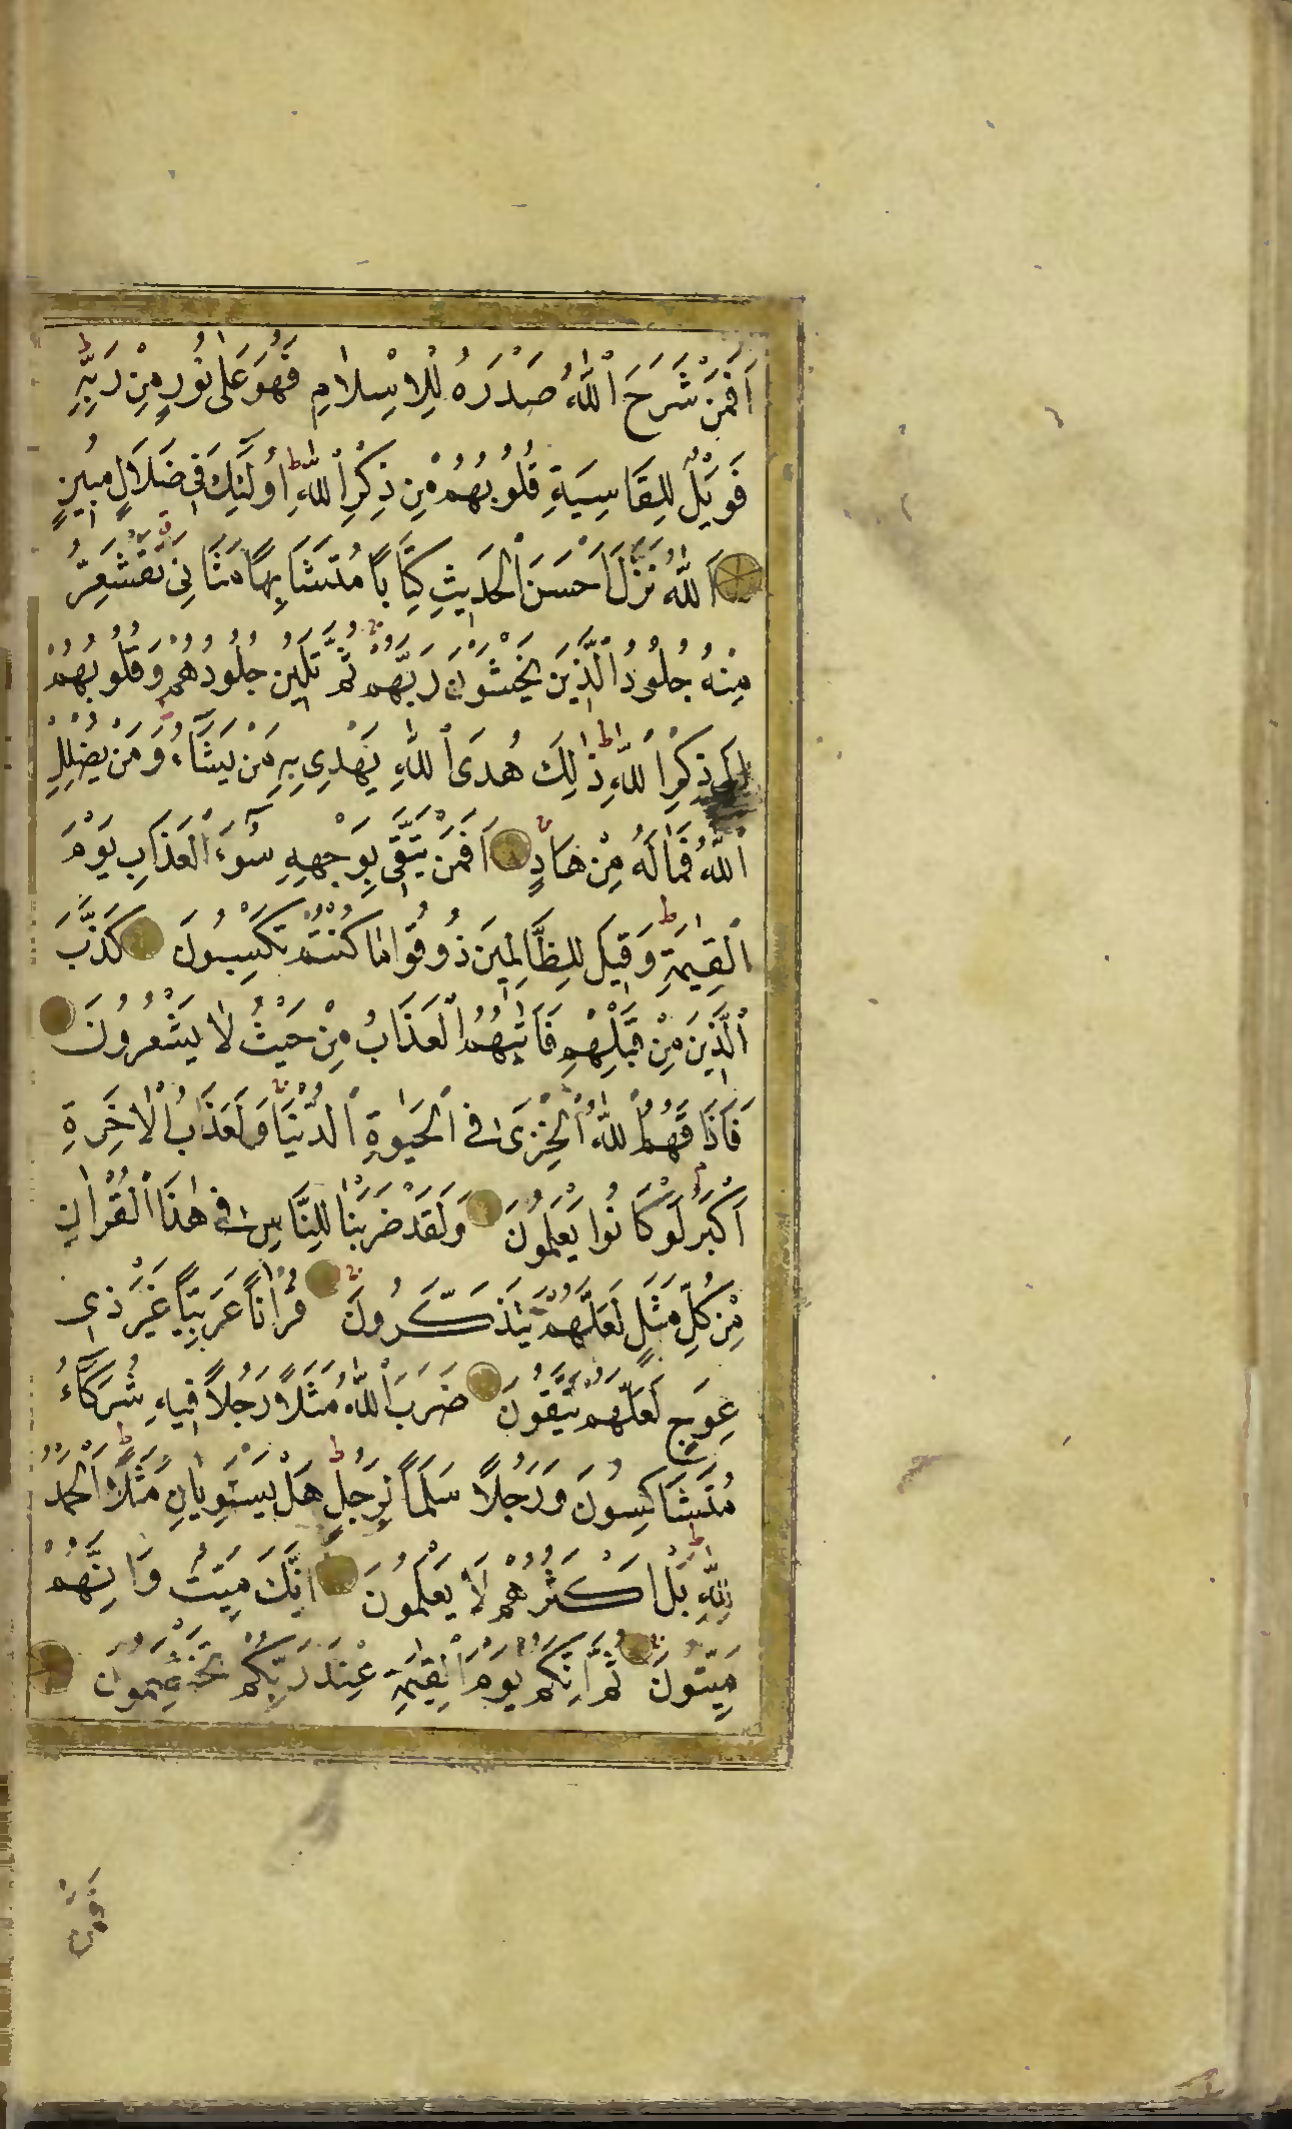 اَفَمَنْ شَرَحَ ٱللّٰهُ صَدْرَهُ لِلْاِسْلَامِ فَهُوَ عَلٰى نُورٍ مِنْ رَبِّهِ ط
فَوَيْلٌ لِلْقَاسِيَةِ قُلُوبُهُمْ مِنْ ذِكْرِ ٱللّٰهِ ط اُولٰٓئِكَ فِى ضَلَالٍ مُبِينٍ
اَللّٰهُ نَزَّلَ اَحْسَنَ ٱلْحَدِيثِ كِتَابًا مُتَشَابِهًا مَثَانِىَ ق تَقْشَعِرُّ
مِنْهُ جُلُودُ ٱلَّذِينَ يَخْشَوْنَ رَبَّهُمْ ثُمَّ تَلِينُ جُلُودُهُمْ وَقُلُوبُهُمْ
اِلٰى ذِكْرِ ٱللّٰهِ ط ذٰلِكَ هُدَى ٱللّٰهِ يَهْدِى بِهِ مَنْ يَشَآءُ وَمَنْ يُضْلِلِ
ٱللّٰهُ فَمَا لَهُ مِنْ هَادٍ اَفَمَنْ يَتَّقِى بِوَجْهِهِ سُوٓءَ ٱلْعَذَابِ يَوْمَ
ٱلْقِيٰمَةِ ط وَقِيلَ لِلظَّالِمِينَ ذُوقُوا مَا كُنْتُمْ تَكْسِبُونَ كَذَّبَ
ٱلَّذِينَ مِنْ قَبْلِهِمْ فَاَتٰيهُمُ ٱلْعَذَابُ مِنْ حَيْثُ لَا يَشْعُرُونَ
فَاَذَاقَهُمُ ٱللّٰهُ ٱلْخِزْىَ فِى ٱلْحَيٰوةِ ٱلدُّنْيَا وَلَعَذَابُ ٱلْاٰخِرَةِ
اَكْبَرُ م لَوْ كَانُوا يَعْلَمُونَ وَلَقَدْ ضَرَبْنَا لِلنَّاسِ فِى هٰذَا ٱلْقُرْاٰنِ
مِنْ كُلِّ مَثَلٍ لَعَلَّهُمْ يَتَذَكَّرُونَ قُرْاٰنًا عَرَبِيًّا غَيْرَ ذِى
عِوَجٍ لَعَلَّهُمْ يَتَّقُونَ ضَرَبَ ٱللّٰهُ مَثَلًا رَجُلًا فِيهِ شُرَكَآءُ
مُتَشَاكِسُونَ وَرَجُلًا سَلَمًا لِرَجُلٍ ط هَلْ يَسْتَوِيَانِ مَثَلًا ط اَلْحَمْدُ
لِلّٰهِ ط بَلْ اَكْثَرُهُمْ لَا يَعْلَمُونَ اِنَّكَ مَيِّتٌ وَاِنَّهُمْ
مَيِّتُونَ ثُمَّ اِنَّكُمْ يَوْمَ ٱلْقِيٰمَةِ عِنْدَ رَبِّكُمْ تَخْتَصِمُونَ
فَمَنْ